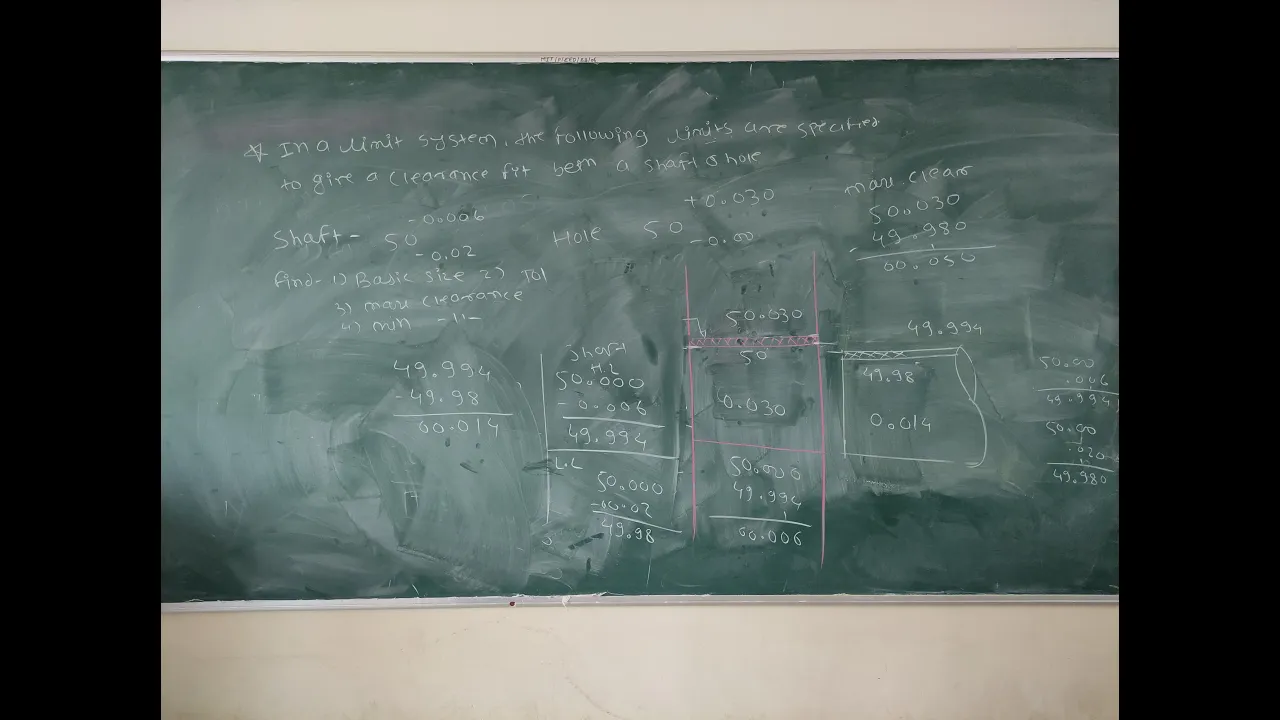 * In a limit system, the following limits are specified
to give a clearance fit betn a shaft & hole
Shaft - 50 -0.006 -0.02
Hole 50 +0.030 -0.00
Find - 1) Basic size 2) Tol
3) max clearance
4) min -11-
max. clear
50.030
- 49.980
00.050
49.994
- 49.98
00.014
Shaft
H.L
50.000
- 0.006
49.994
L.L
50.000
- 00.02
49.98
50.030
50
0.030
50.000
49.994
00.006
49.994
49.98
0.014
50.00
.006
49.994
50.00
.020
49.980